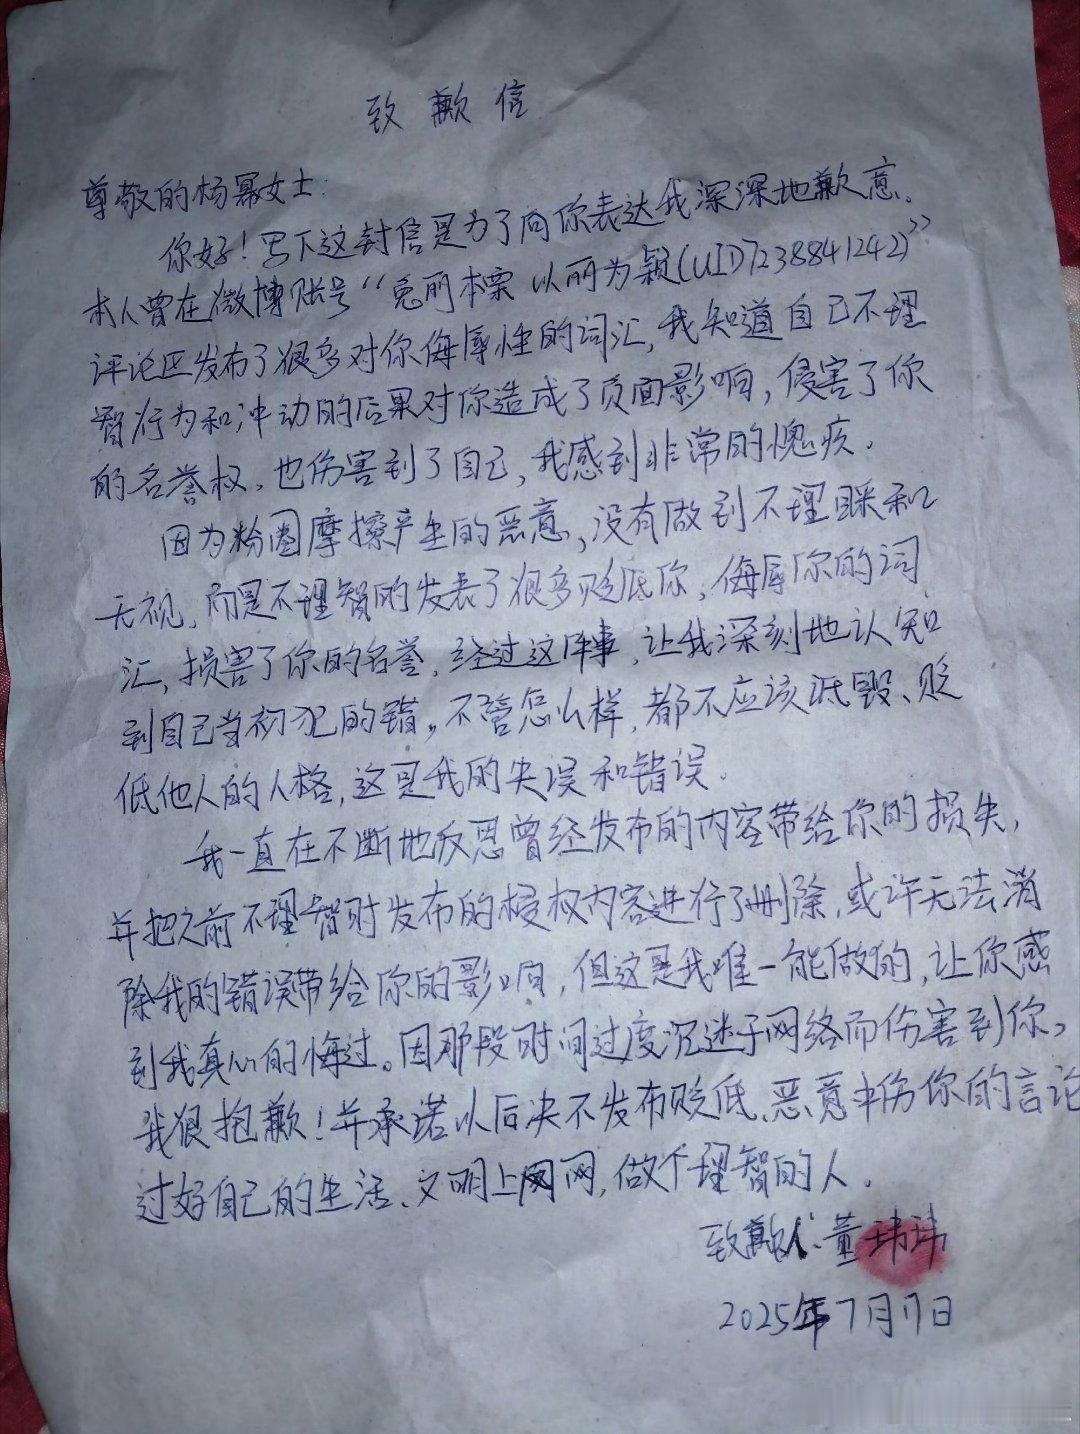 致歉信
尊敬的杨幂女士:
你好!写下这封信是为了向你表达我深深地歉意.
本人曾在微博账号“兔丽本票 以丽为颖(UID7238841242)”
评论区发布了很多对你侮辱性的词汇,我知道自己不理
智行为和冲动的后果对你造成了负面影响,侵害了你
的名誉权,也伤害到了自己,我感到非常的愧疚.
因为粉圈摩擦产生的恶意,没有做到不理睬和
无视,而是不理智的发表了很多贬低你,侮辱你的词
汇,损害了你的名誉,经过这件事,让我深刻地认知
到自己当初犯的错,不管怎么样,都不应该诋毁、贬
低他人的人格,这是我的失误和错误.
我一直在不断地反思曾经发布的内容带给你的损失,
并把之前不理智时发布的侵权内容进行了删除,或许无法消
除我的错误带给你的影响,但这是我唯一能做的,让你感
到我真心的悔过。因那段时间过度沉迷于网络而伤害到你,
我很抱歉!并承诺以后决不发布贬低、恶意中伤你的言论
过好自己的生活、文明上网,做个理智的人.
致歉人:董玮玮
2025年7月17日